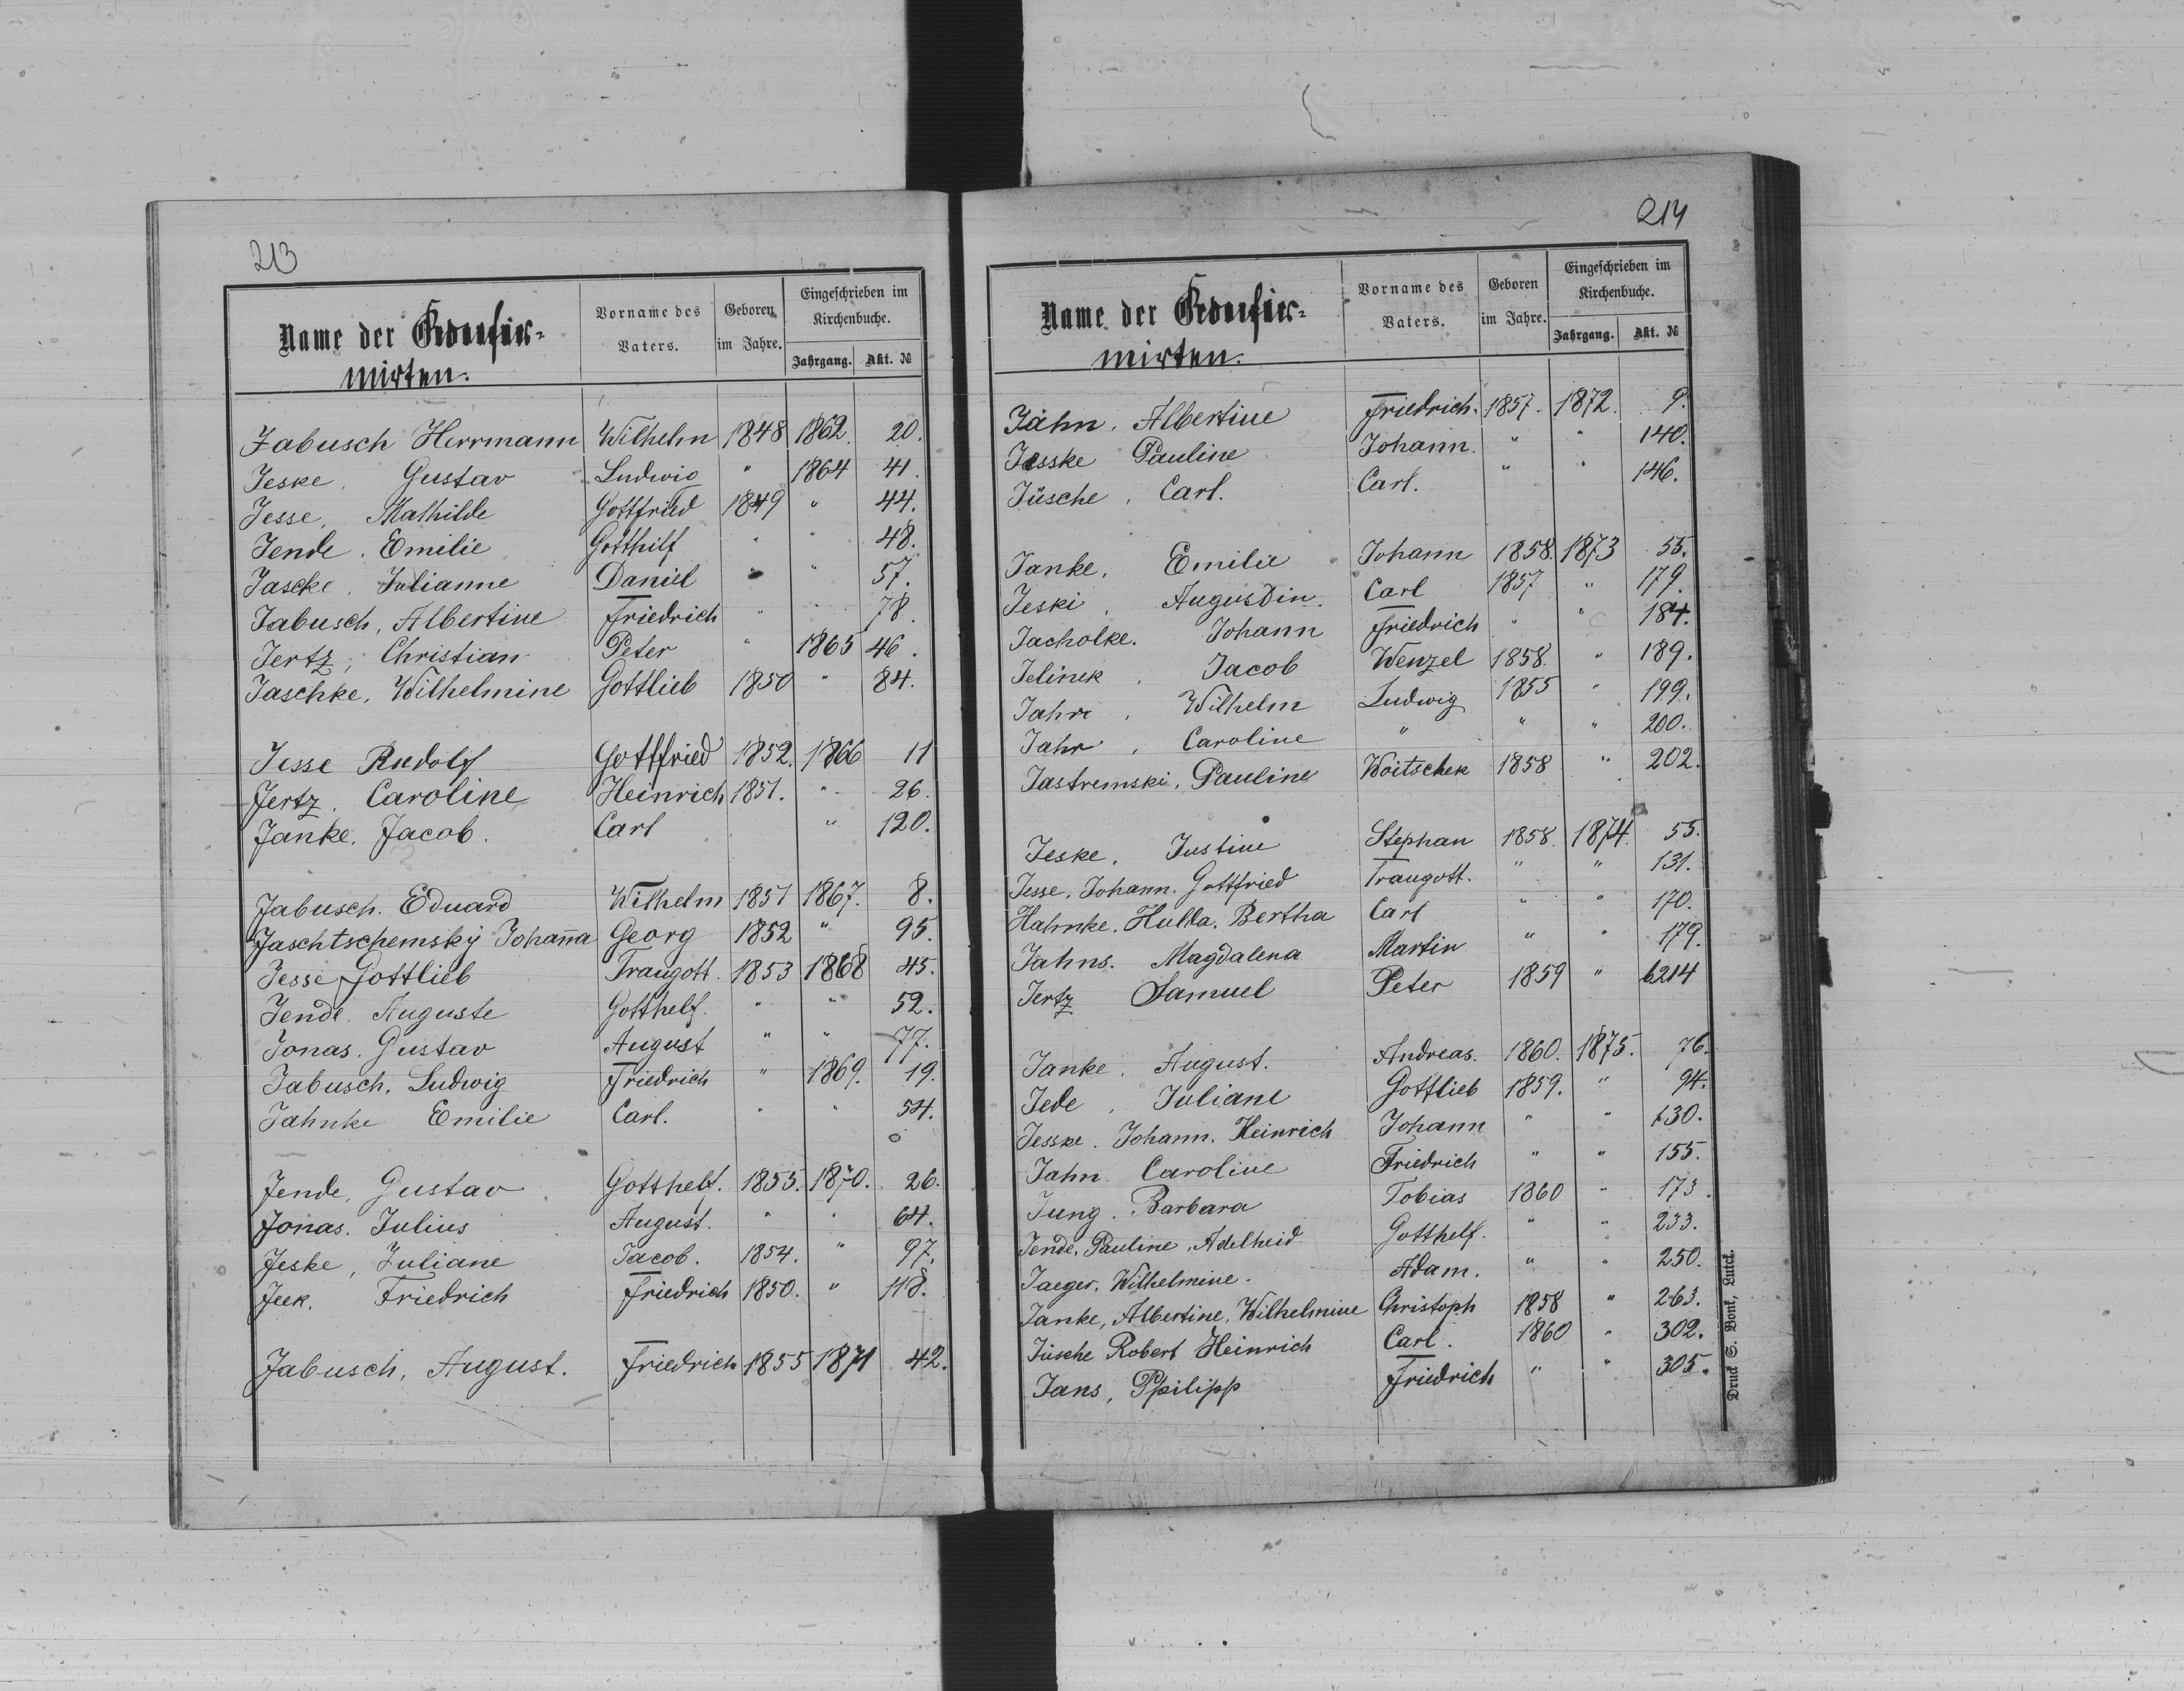 213
Name der Confir-
mirten.
Vorname des
Vaters.
Geboren
im Jahre.
Eingeschrieben im
Kirchenbuche.
Jahrgang. Akt. №
Jabusch Herrmann Wilhelm 1848 1862. 20.
Jeske, Gustav Ludwig " 1864 41.
Jesse, Mathilde Gottfried 1849 " 44.
Jende. Emilie Gotthilf " " 48.
Jascke, Julianne Daniel " " 57.
Jabusch, Albertine Friedrich " " 78.
Jertz, Christian Peter " 1865 46.
Jaschke, Wilhelmine Gottlieb 1850 " 84.
Jesse Rudolf Gottfried 1852. 1866 11
Jertz. Caroline Heinrich 1851. " 26.
Janke. Jacob. Carl " 120.
Jabusch. Eduard Wilhelm 1851 1867. 8.
Jaschtschemsky Johan̄a Georg 1852 " 95.
Jesse Gottlieb Traugott. 1853 1868 45.
Jende. Auguste Gotthelf. " " 52.
Jonas. Gustav August " " 77.
Jabusch. Ludwig Friedrich " 1869. 19.
Jahnke Emilie Carl. " " 54.
Jende, Gustav Gotthelf. 1855. 1870. 26.
Jonas. Julius August. " " 64.
Jeske, Juliane Jacob. 1854. " 97.
Jeek. Friedrich Friedrich 1850. " 118.
Jabusch, August. Friedrich 1855 1871 42.
214
Name der Confir-
mirten.
Vorname des
Vaters.
Geboren
im Jahre.
Eingeschrieben im
Kirchenbuche.
Jahrgang. Akt. №
Jähn. Albertine Friedrich. 1857. 1872. 9.
Jesske Pauline Johann. " " 140.
Jüsche, Carl. Carl. " " 146.
Janke, Emilie Johann 1858. 1873 55.
Jeski, Augustin. Carl 1857 " 179.
Jacholke. Johann Friedrich " " 184.
Jelinek, Jacob Wenzel 1858. " 189.
Jahr, Wilhelm Ludwig 1855 " 199.
Jahr, Caroline " " " 200.
Jastremski, Pauline Woitschek 1858 " 202.
Jeske, Justine Stephan 1858. 1874. 55.
Jesse, Johann. Gottfried Traugott. " " 131.
Hahnke. Hulda. Bertha Carl " " 170.
Jahns. Magdalena Martin " " 179.
Jertz Samuel Peter 1859 " 6214
Janke, August. Andreas. 1860. 1875. 76.
Jede, Juliane Gottlieb 1859. " 94.
Jesske. Johann. Heinrich Johann " " 130.
Jahn Caroline Friedrich " " 155.
Jung. Barbara Tobias 1860 " 173.
Jende, Pauline, Adelheid Gotthelf. " " 233.
Jaeger, Wilhelmine. Adam. " " 250.
Janke, Albertine, Wilhelmine Christoph 1858 " 263.
Jüsche Robert Heinrich Carl. 1860 " 302.
Jans, Philipp Friedrich " " 305.
Druck S. Bonk, Lutck.